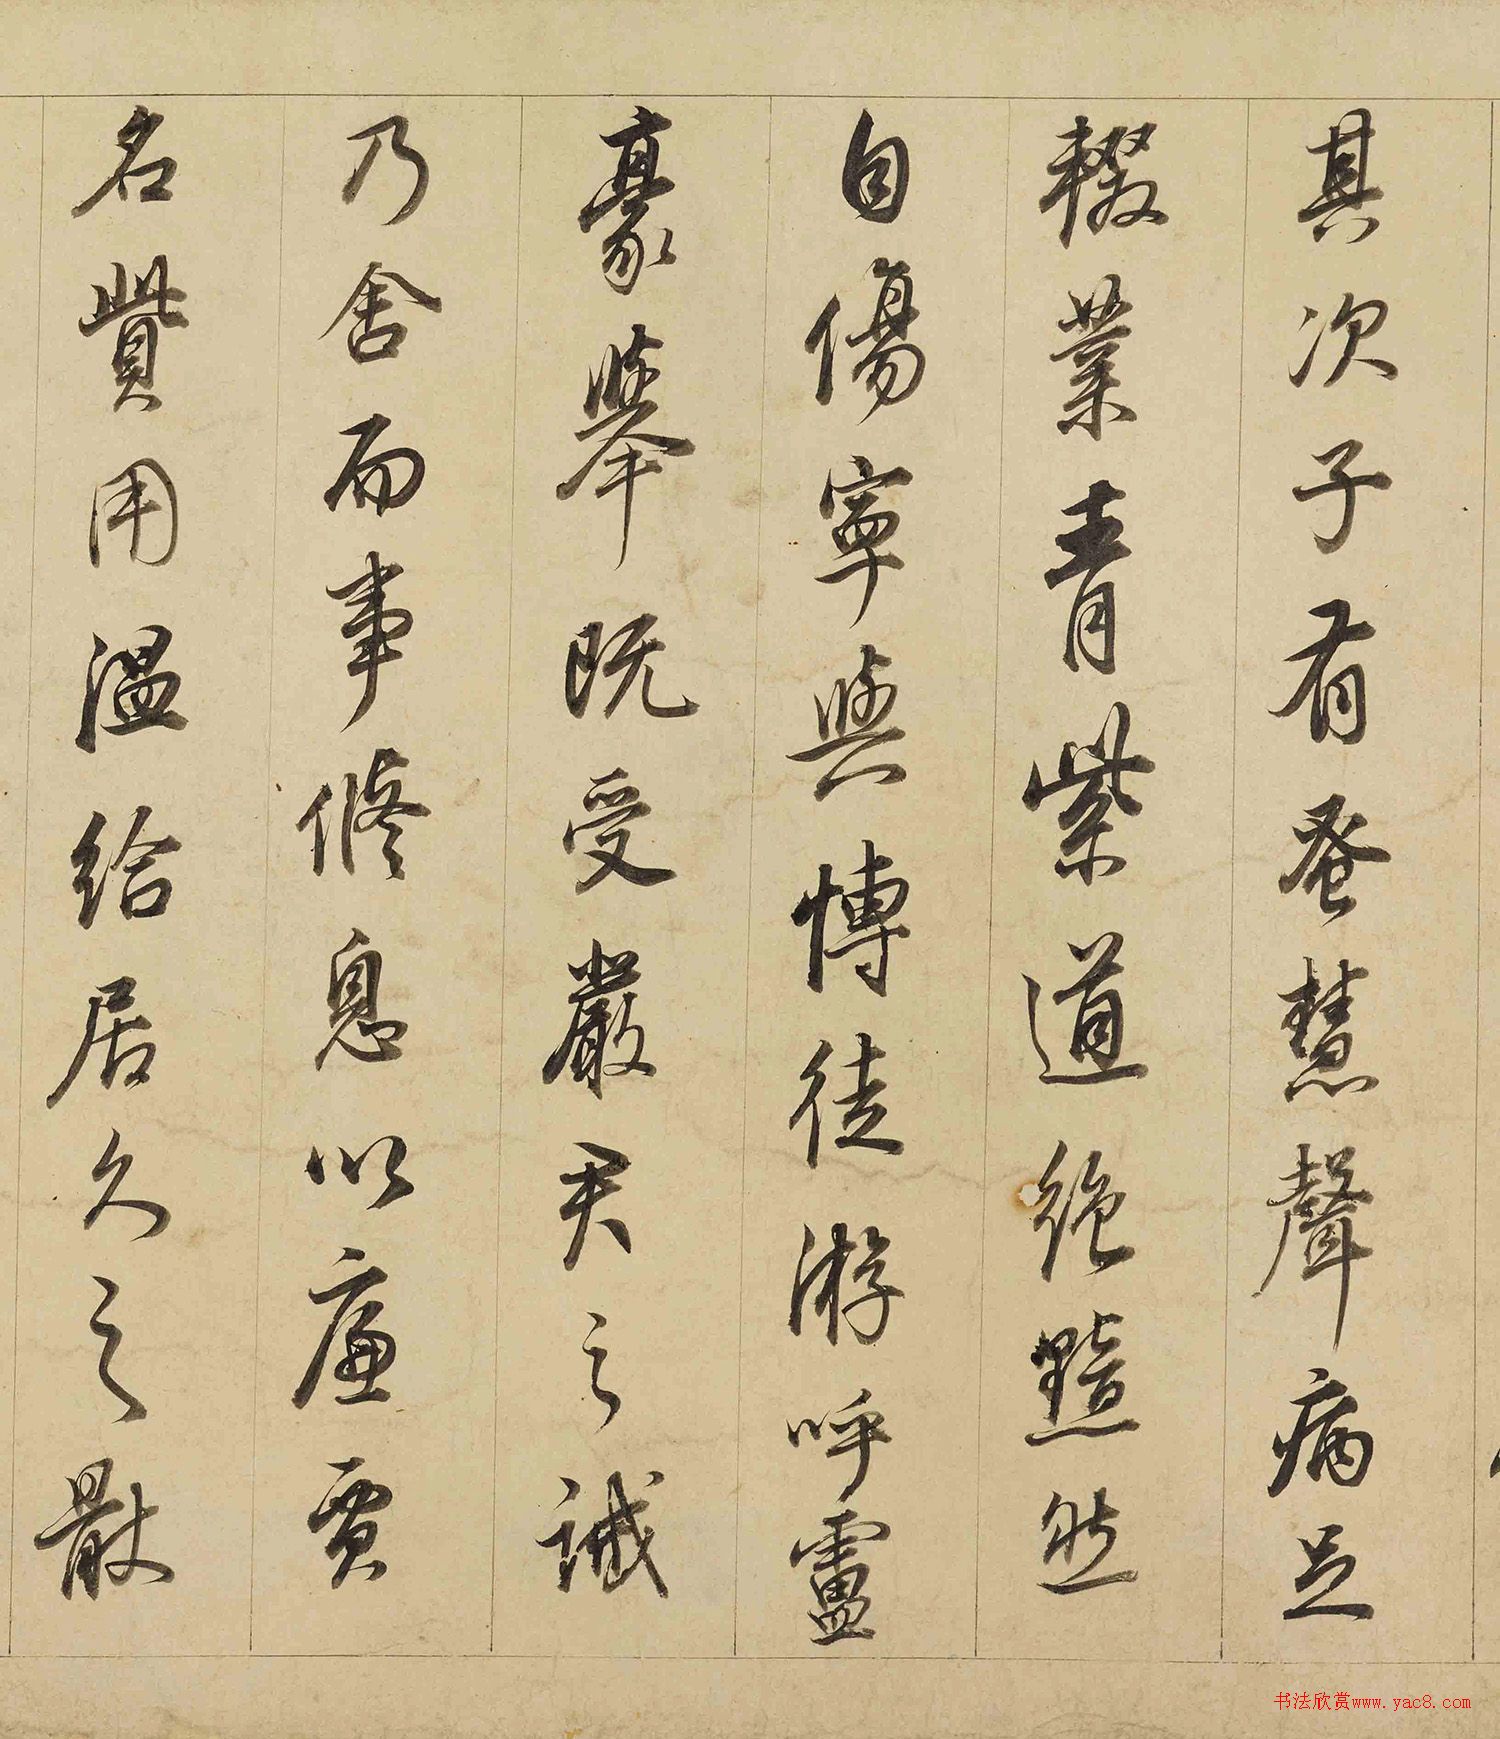 其次子有蚤慧聲病足
輟業青紫道絶黯然
自傷寧與博徒游呼盧
豪舉既受嚴君之誡
乃舍而事修息以廉賈
名貲用温給居久之散
书法欣赏www.yac8.com